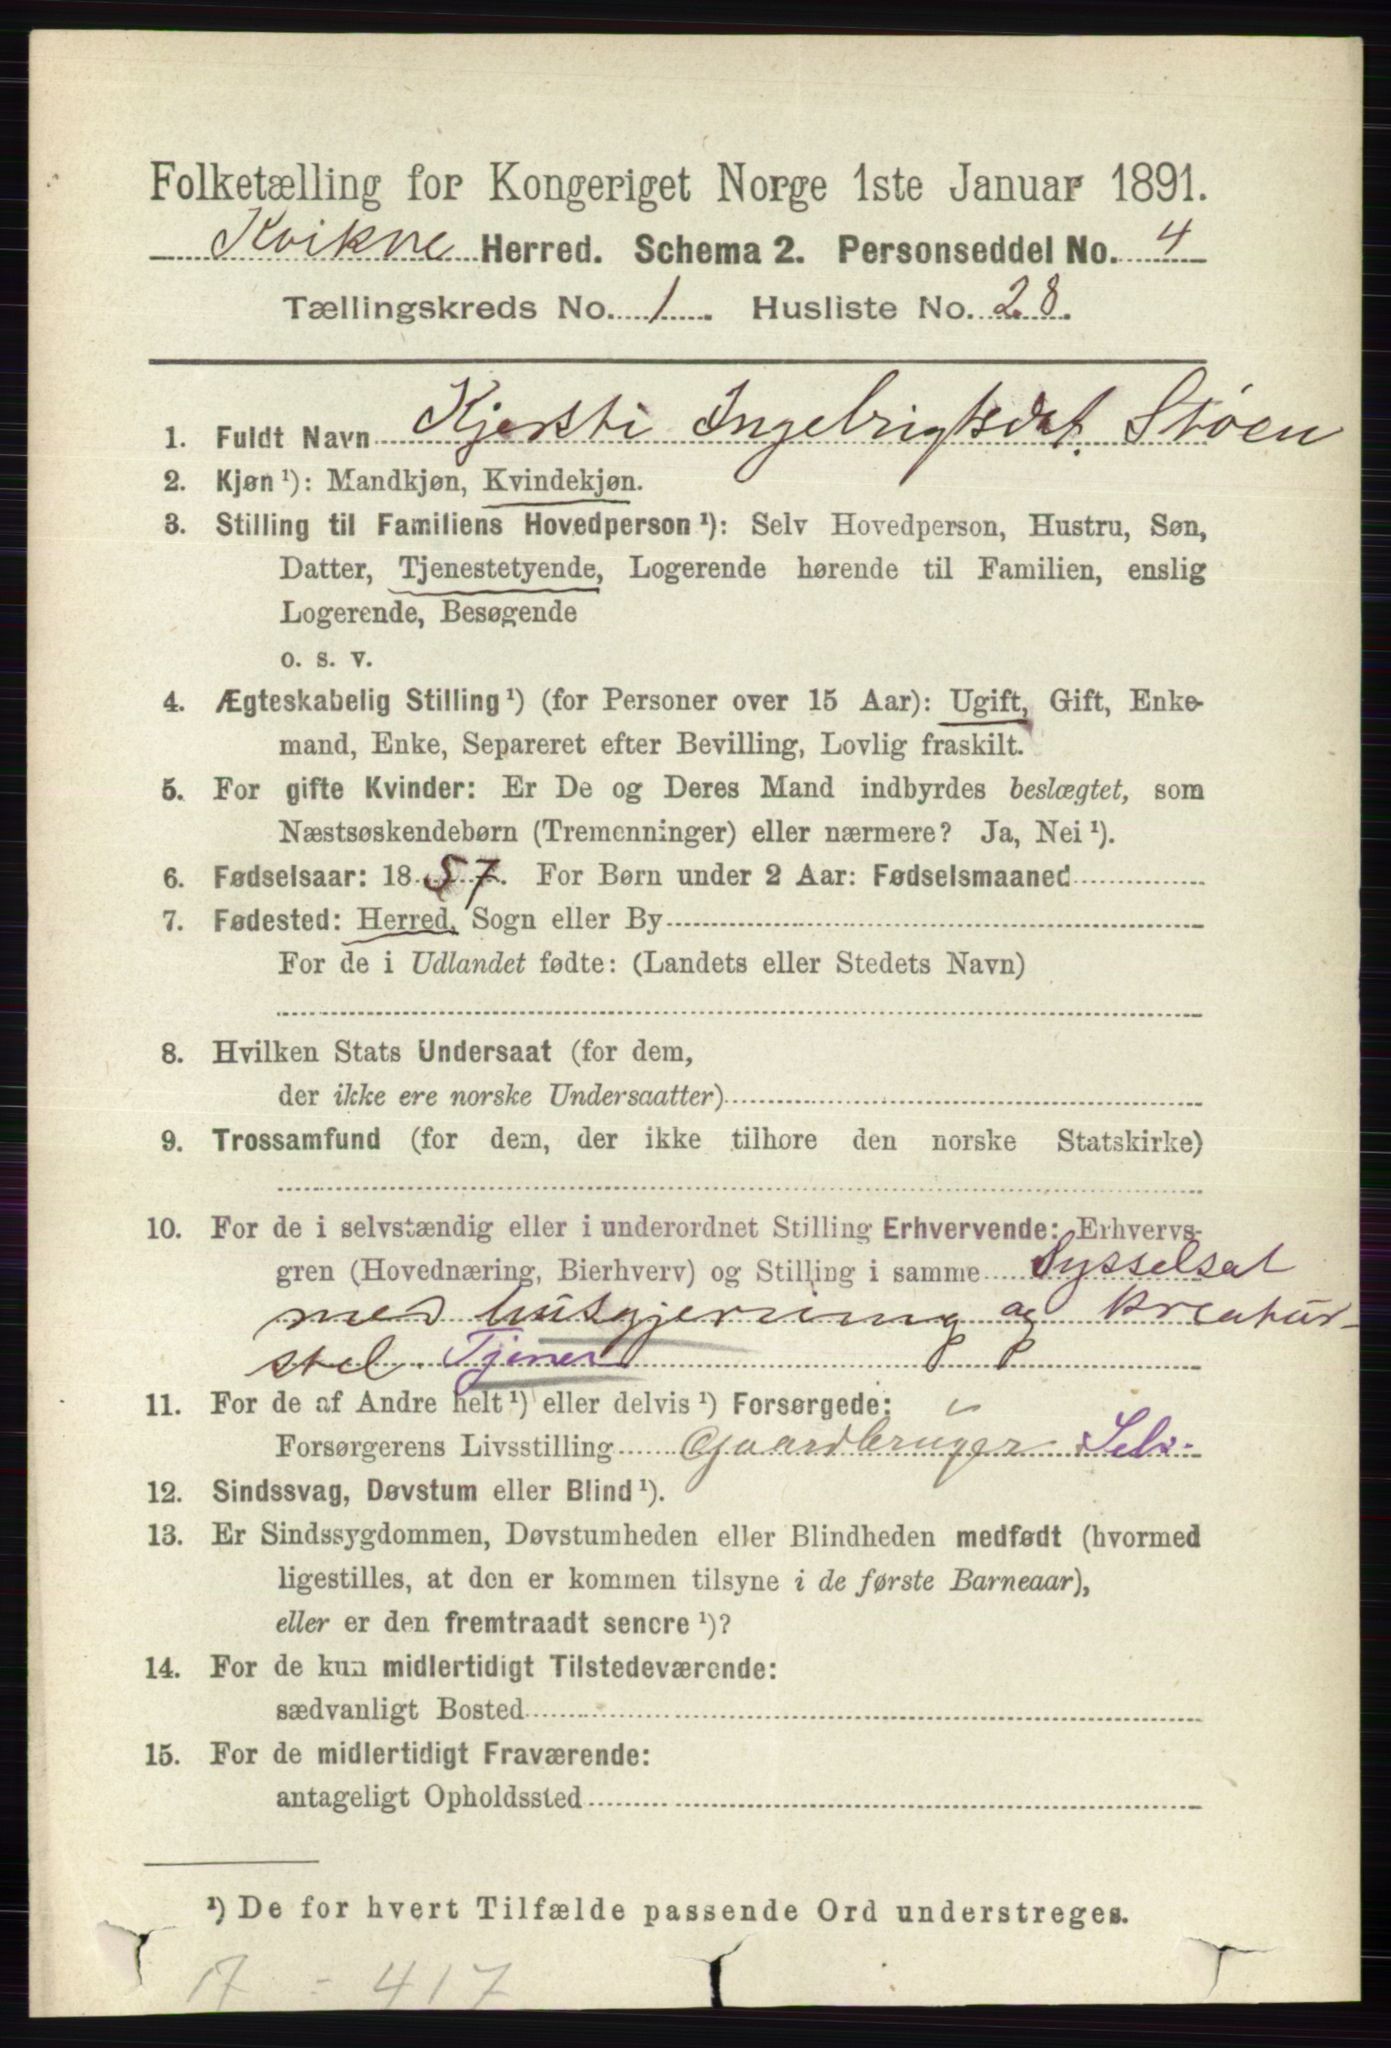 Folketælling for Kongeriget Norge 1ste Januar 1891.
Kvikne Herred. Schema 2. Personseddel No. 4
Tællingskreds No. 1. Husliste No. 28.
1. Fuldt Navn Kjersti Ingebrigtsdat. Støen
2. Kjøn ¹): Mandkjøn, Kvindekjøn.
3. Stilling til Familiens Hovedperson ¹): Selv Hovedperson, Hustru, Søn,
Datter, Tjenestetyende, Logerende hørende til Familien, enslig
Logerende, Besøgende
o. s. v.
4. Ægteskabelig Stilling ¹) (for Personer over 15 Aar): Ugift, Gift, Enke-
mand, Enke, Separeret efter Bevilling, Lovlig fraskilt.
5. For gifte Kvinder: Er De og Deres Mand indbyrdes beslægtet, som
Næstsøskendebørn (Tremenninger) eller nærmere? Ja, Nei ¹).
6. Fødselsaar: 1857. For Børn under 2 Aar: Fødselsmaaned
7. Fødested: Herred, Sogn eller By
For de i Udlandet fødte: (Landets eller Stedets Navn)
8. Hvilken Stats Undersaat (for dem,
der ikke ere norske Undersaatter)
9. Trossamfund (for dem, der ikke tilhore den norske Statskirke)
10. For de i selvstændig eller i underordnet Stilling Erhvervende: Erhvervs-
gren (Hovednæring, Bierhverv) og Stilling i samme Sysselsat
med husgjerning og kreatur-
stel. Tjener
11. For de af Andre helt ¹) eller delvis ¹) Forsørgede:
Forsørgerens Livsstilling Gaardbruger Selv.
12. Sindssvag, Døvstum eller Blind ¹).
13. Er Sindssygdommen, Døvstumheden eller Blindheden medfødt (hvormed
ligestilles, at den er kommen tilsyne i de første Barneaar),
eller er den fremtraadt senere ¹)?
14. For de kun midlertidigt Tilstedeværende:
sædvanligt Bosted
15. For de midlertidigt Fraværende:
antageligt Opholdssted
¹) De for hvert Tilfælde passende Ord understreges.
417